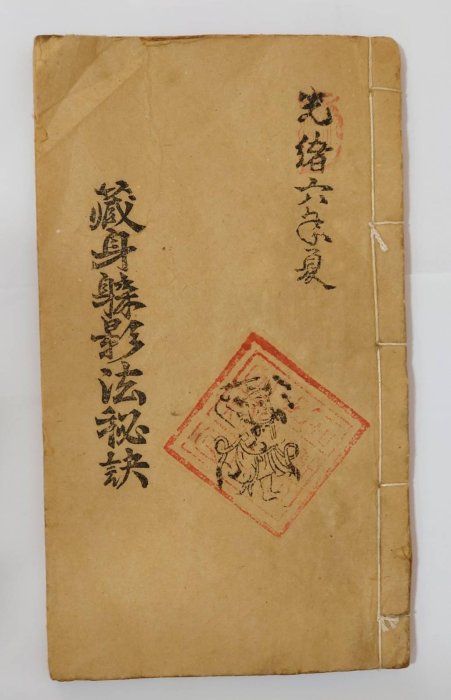 光緒六年夏
藏身躲影法秘訣